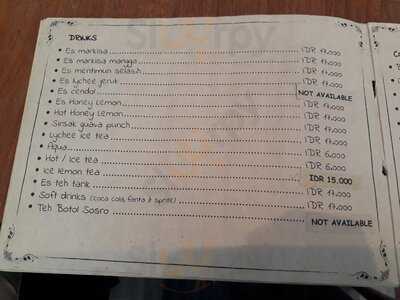 DRINKS
• Es markisa IDR 17.000
• Es markisa mangga IDR 17.000
• Es mentimun selasih IDR 17.000
• Es lychee jeruk IDR 17.000
• Es cendol NOT AVAILABLE
• Es Honey Lemon IDR 17.000
• Hot Honey Lemon IDR 17.000
• Sirsak guava punch IDR 17.000
• Lychee ice tea IDR 17.000
• Aqua IDR 6.000
• Hot / Ice tea IDR 6.000
• Ice lemon tea IDR 15.000
• Es teh tarik IDR 17.000
• Soft drinks (coca cola, fanta & sprite) IDR 17.000
• Teh Botol Sosro NOT AVAILABLE